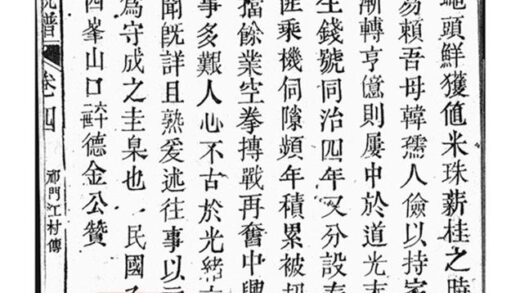 蠅頭鮮獲值米珠薪桂之時
易賴吾母韓孺人儉以持家
漸轉亨億則屢中於道光末
生錢號同治四年又分設泰
匪乘機伺隙頻年積累被刼
擋餘業空拳搏戰再奮中興
事多艱人心不古於光緒六
聞旣詳且熟爰述往事以示
為守成之圭臬也 民國
四峯山口 六十二世 德金公贊
譜 卷四 祁門江村傳